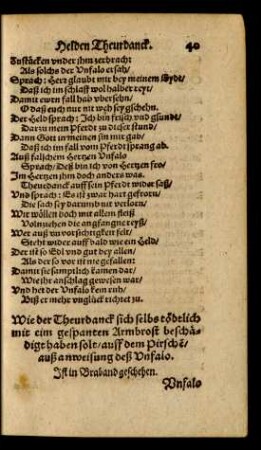 Helden Theurdanck. 40
Zustücken vnder jhm zerbracht
Als solchs der Vnfalo ersah/
Sprach: Herr glaubt mir bey meinem Eydt/
Daß ich im schlaff wol halber reyt/
Damit ewrn fall hab vbersehn/
O daß euch nur nit weh sey gschehn.
Der Held sprach: Ich bin frisch vnd gsundt/
Darzu mein Pferdt zu dieser stund/
Dann Gott in meinen sin mir gab/
Daß ich im fall vom Pferdt sprang ab.
Auß falschem Hertzen Vnfalo
Sprach/ Deß bin ich von Hertzen fro/
Im Hertzen jhm doch anders was.
Theurdanck auff sein Pferdt wider saß/
Vnd sprach: Es ist zwar hart gefrorn/
Die sach sey darumb nit verlorn/
Wir wöllen doch mit allem fleiß
Volnziehen die angfangne reyß/
Wer auß vnvorsichtigkeit felt/
Steht wider auff bald wie ein Held/
Der ist so Edl vnd gut dey allen/
Als der so vor ist nie gefallen:
Damit sie samptlich kamen dar/
Wie jhr anschlag gewesen war/
Vnd het der Vnfalo kein ruh/
Biß er mehr vnglück richtet zu.
Wie der Theurdanck sich selbs tödtlich
mit eim gespanten Armbrost beschä-
digt haben solt/ auff dem Pirsche/
auß anweisung deß Vnfalo.
Ist in Braband geschehen.
Vnfalo